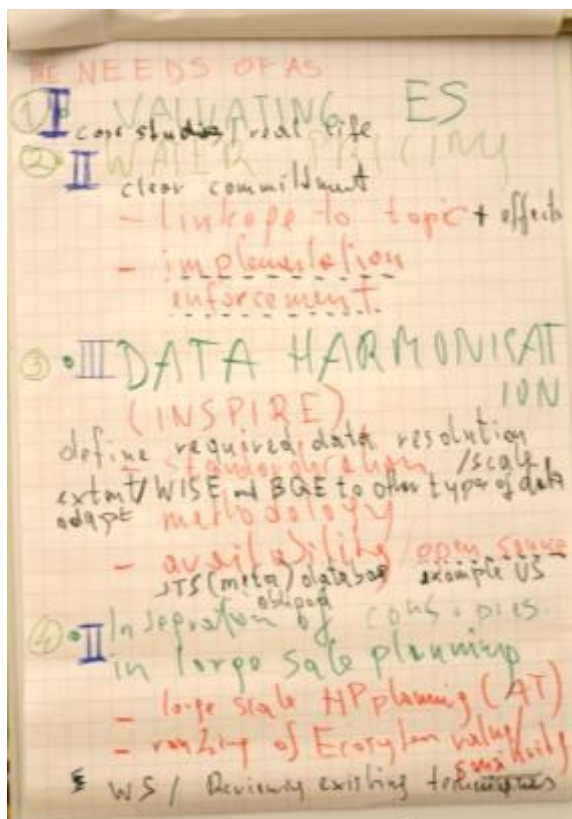 THE NEEDS OF AS
① I VALUATING ES
case studies / real life
② II WATER PRICING
clear committment
- linkage to topic + effects
- implementation
enforcement.
③ • III DATA HARMONISAT
ION
(INSPIRE)
define required data resolution
- standardisation /scale
extent/WISE and BQE to other type of data
adapt methodology
- availability/open source
(meta) database example US
④ • II Integration of
in large sale planning
- large scale HP planning (AT)
- ranking of Ecosystem value/
WS / Reviewing existing techniques